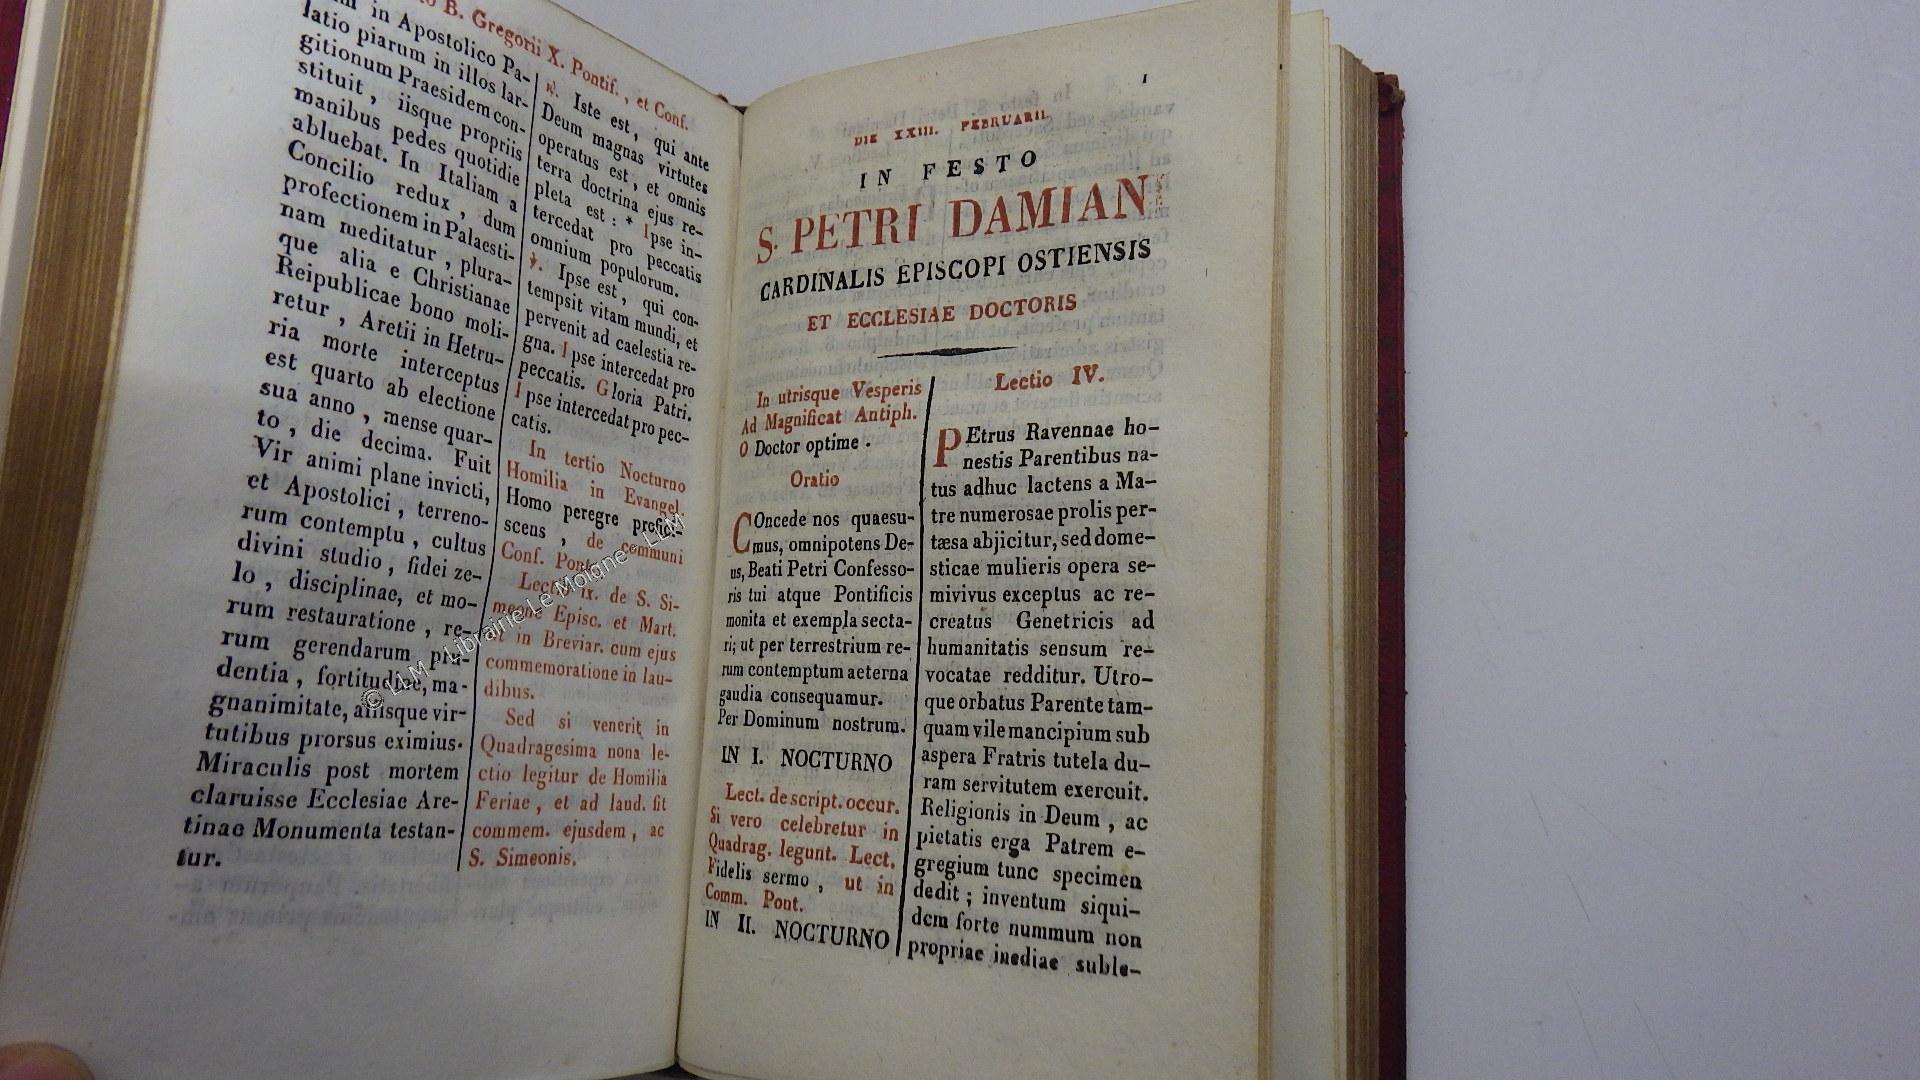 B. Gregorii X. Pontif., et Conf.
in Apostolico Pa-
latio piarum in illos lar-
gitionum Praesidem con-
stituit, iisque propriis
manibus pedes quotidie
abluebat. In Italiam a
Concilio redux, dum
profectionem in Palaesti-
nam meditatur, plura-
que alia e Christianae
Reipublicae bono moli-
retur, Aretii in Hetru-
ria morte interceptus
est quarto ab electione
sua anno, mense quar-
to, die decima. Fuit
Vir animi plane invicti,
et Apostolici, terreno-
rum contemptu, cultus
divini studio, fidei ze-
lo, disciplinae, et mo-
rum restauratione, re-
rum gerendarum pru-
dentia, fortitudine, ma-
gnanimitate, aliisque vir-
tutibus prorsus eximius.
Miraculis post mortem
claruisse Ecclesiae Are-
tinae Monumenta testan-
tur.
℟. Iste est, qui ante
Deum magnas virtutes
operatus est, et omnis
terra doctrina ejus re-
pleta est: * Ipse in-
tercedat pro peccatis
omnium populorum.
℣. Ipse est, qui con-
tempsit vitam mundi, et
pervenit ad caelestia re-
gna. Ipse intercedat pro
peccatis. Gloria Patri.
Ipse intercedat pro pec-
catis.
In tertio Nocturno
Homilia in Evangel.
Homo peregre profici-
scens, de communi
Conf. Pont.
Lectio ix. de S. Si-
meone Episc. et Mart.
ut in Breviar. cum ejus
commemoratione in lau-
dibus.
Sed si venerit in
Quadragesima nona le-
ctio legitur de Homilia
Feriae, et ad laud. fit
commem. ejusdem, ac
S. Simeonis.
© LLM - Librairie Le Moigne - LLM
1
DIE XXIII. FEBRUARII.
IN FESTO
S. PETRI DAMIANI
CARDINALIS EPISCOPI OSTIENSIS
ET ECCLESIAE DOCTORIS
In utrisque Vesperis
Ad Magnificat Antiph.
O Doctor optime.
Oratio
COncede nos quaesu-
mus, omnipotens De-
us, Beati Petri Confesso-
ris tui atque Pontificis
monita et exempla secta-
ri; ut per terrestrium re-
rum contemptum aeterna
gaudia consequamur.
Per Dominum nostrum.
IN I. NOCTURNO
Lect. de script. occur.
Si vero celebretur in
Quadrag. legunt. Lect.
Fidelis sermo, ut in
Comm. Pont.
IN II. NOCTURNO
Lectio IV.
PEtrus Ravennae ho-
nestis Parentibus na-
tus adhuc lactens a Ma-
tre numerosae prolis per-
tæsa abjicitur, sed dome-
sticae mulieris opera se-
mivivus exceptus ac re-
creatus Genetricis ad
humanitatis sensum re-
vocatae redditur. Utro-
que orbatus Parente tam-
quam vile mancipium sub
aspera Fratris tutela du-
ram servitutem exercuit.
Religionis in Deum, ac
pietatis erga Patrem e-
gregium tunc specimen
dedit; inventum siqui-
dem forte nummum non
propriae inediae suble-